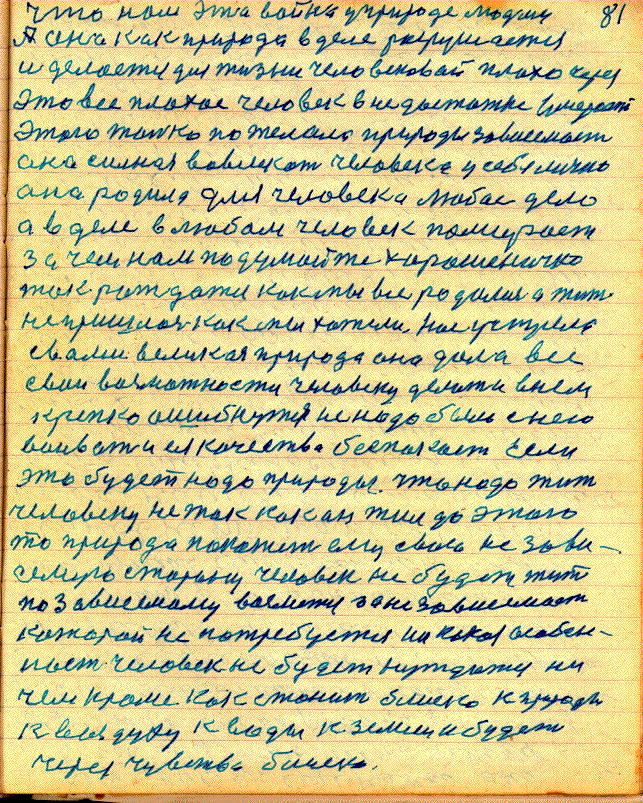 что нам эта война у природе людьми 81
А она как природа в деле розрушается
и делается для жизни человековай плохо через
Это все плохое человек в недостатке умерает
Этого только пожелала природы зависемост
она силная вовликат человека у себя лично
она родила для человека любое дело
а в деле в любом человек помирает
зачем нам подумайте хорошеничко
так рождатися как мы все родилися а жит
не пришлося как мы хотели. Нас устрела
свами великая природа она дала все
свои возможности человеку делат и в нем
крепко ошибнутся не надо было с нею
воеват и ея качества беспокоит Если
это будет надо природы. что надо жит
человеку не так как он жил до этого
то природа покажет ему свою не зави-
семую сторону человек не будет жит
по зависемому возметя за не зависемост
которой не потребуется ни какая особен-
ност человек не будет нуждатся ни
чем кроме как станит блиско к природы
к воздуху к воды к земли и будет
через чувства блиско.